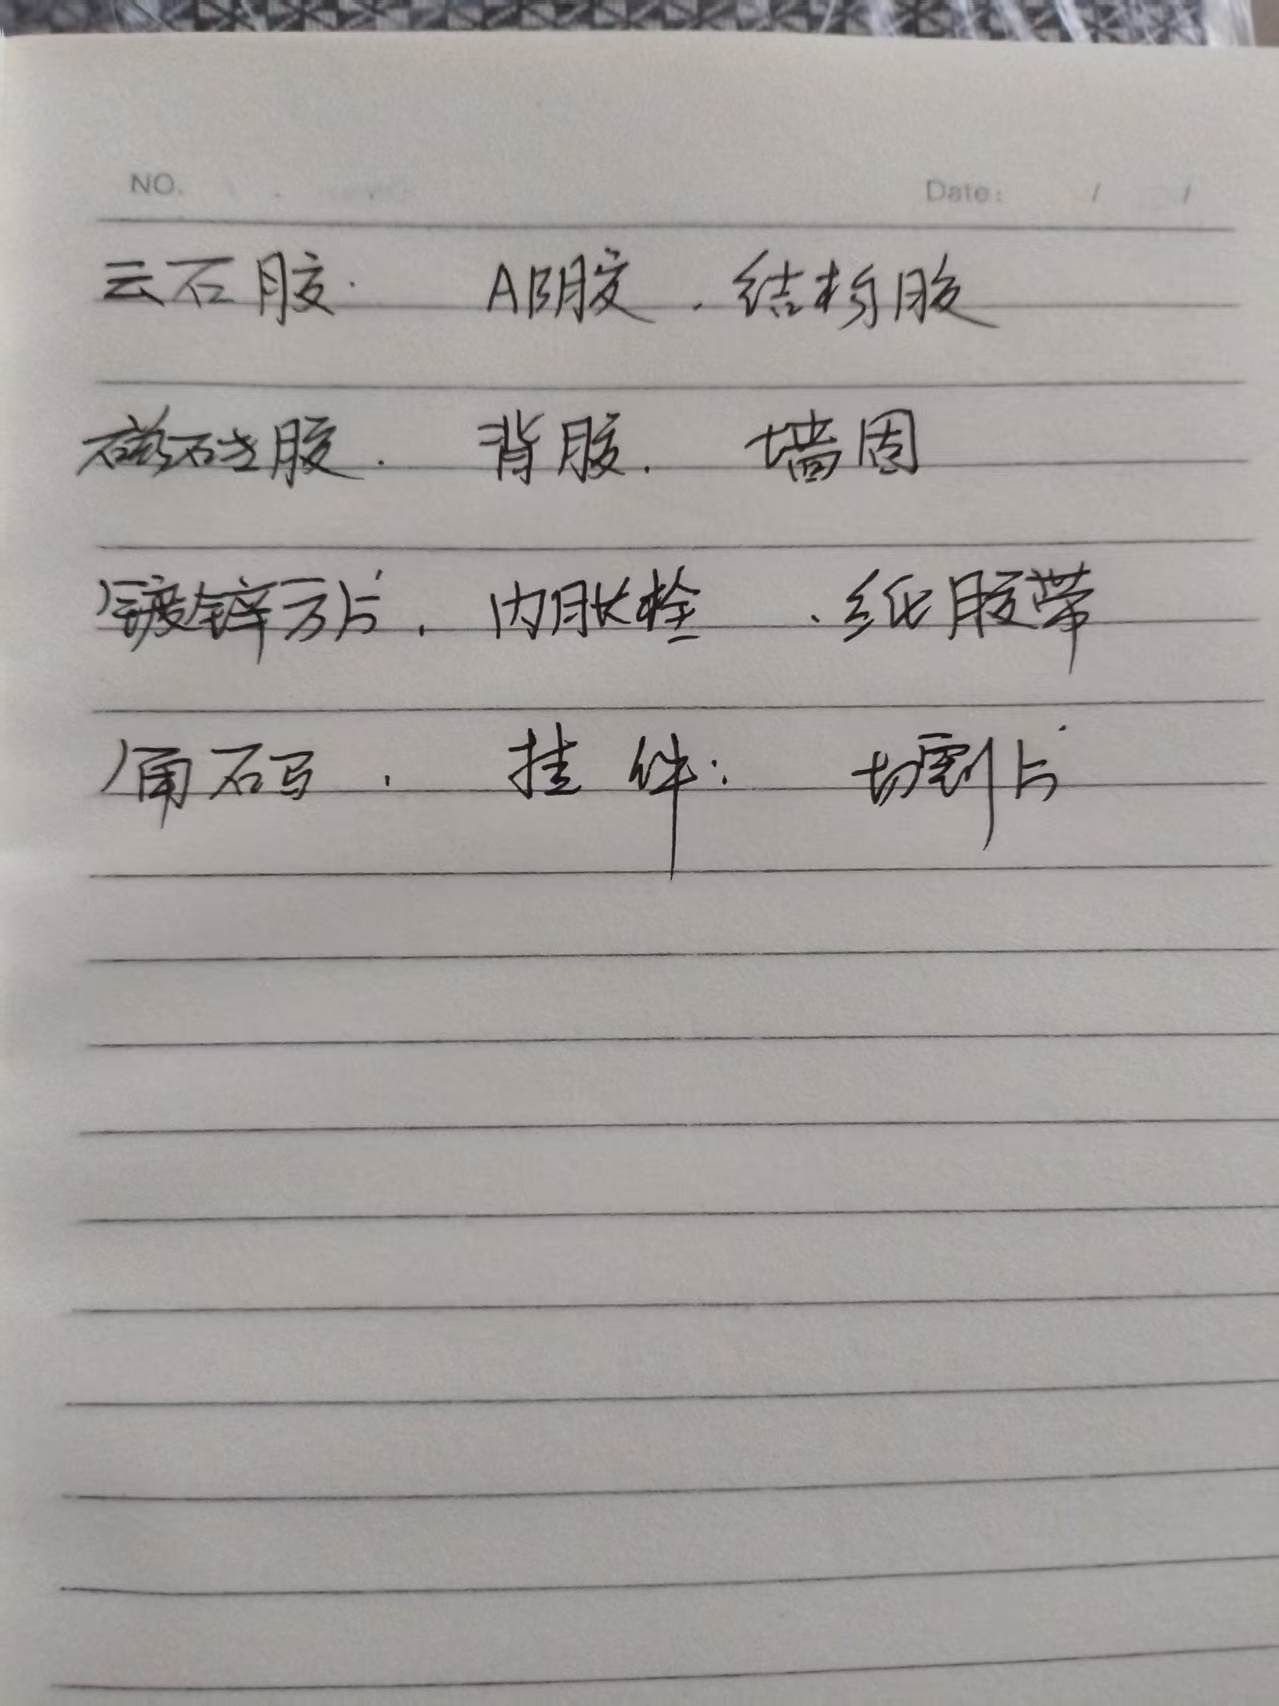 NO. Date: / /
云石胶. AB胶. 结构胶
磁砖胶. 背胶. 墙固
镀锌方片. 内胀栓. 纸胶带
角码. 挂件. 切割片